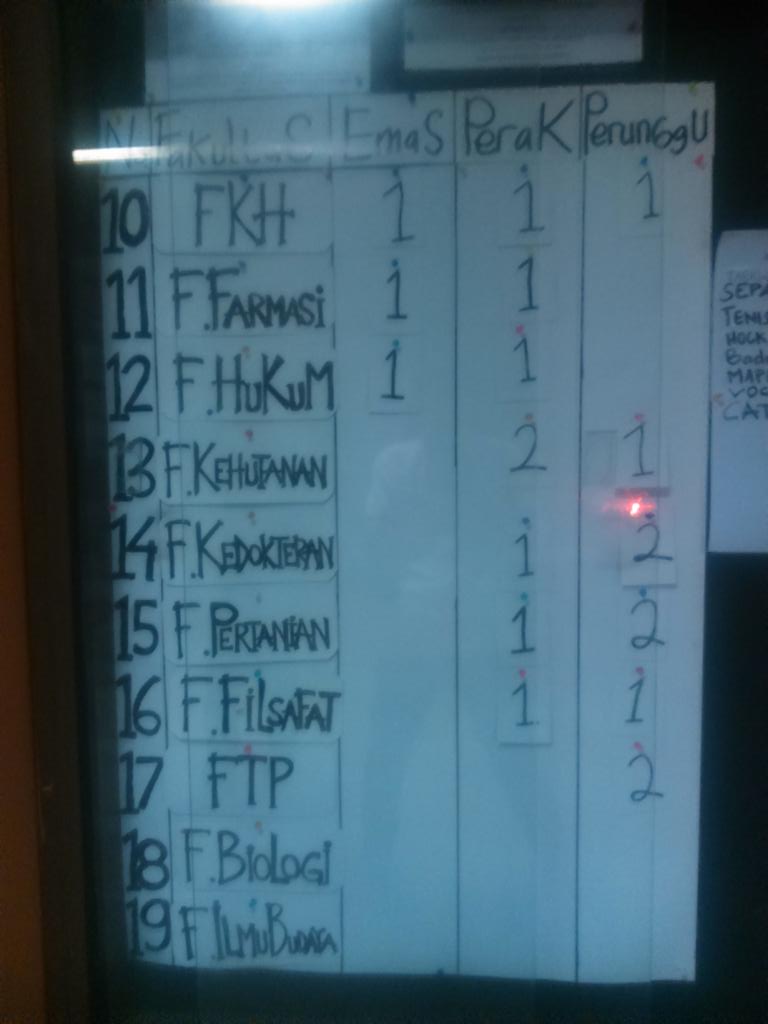 No Fakultas Emas Perak Perunggu
10 FKH 1 1 1
11 F.FARMASi 1 1
12 F.HuKuM 1 1
13 F.KEHUTANAN 2 1
14 F.KEDOKTERAN 1 2
15 F.PERTANIAN 1 2
16 F.FiLSAFAT 1 1
17 FTP 2
18 F.BioLOGi
19 F.ILMU BUDAYA
SEPA
TENIS
HOCK
Bad
MAP
VOC
CAT